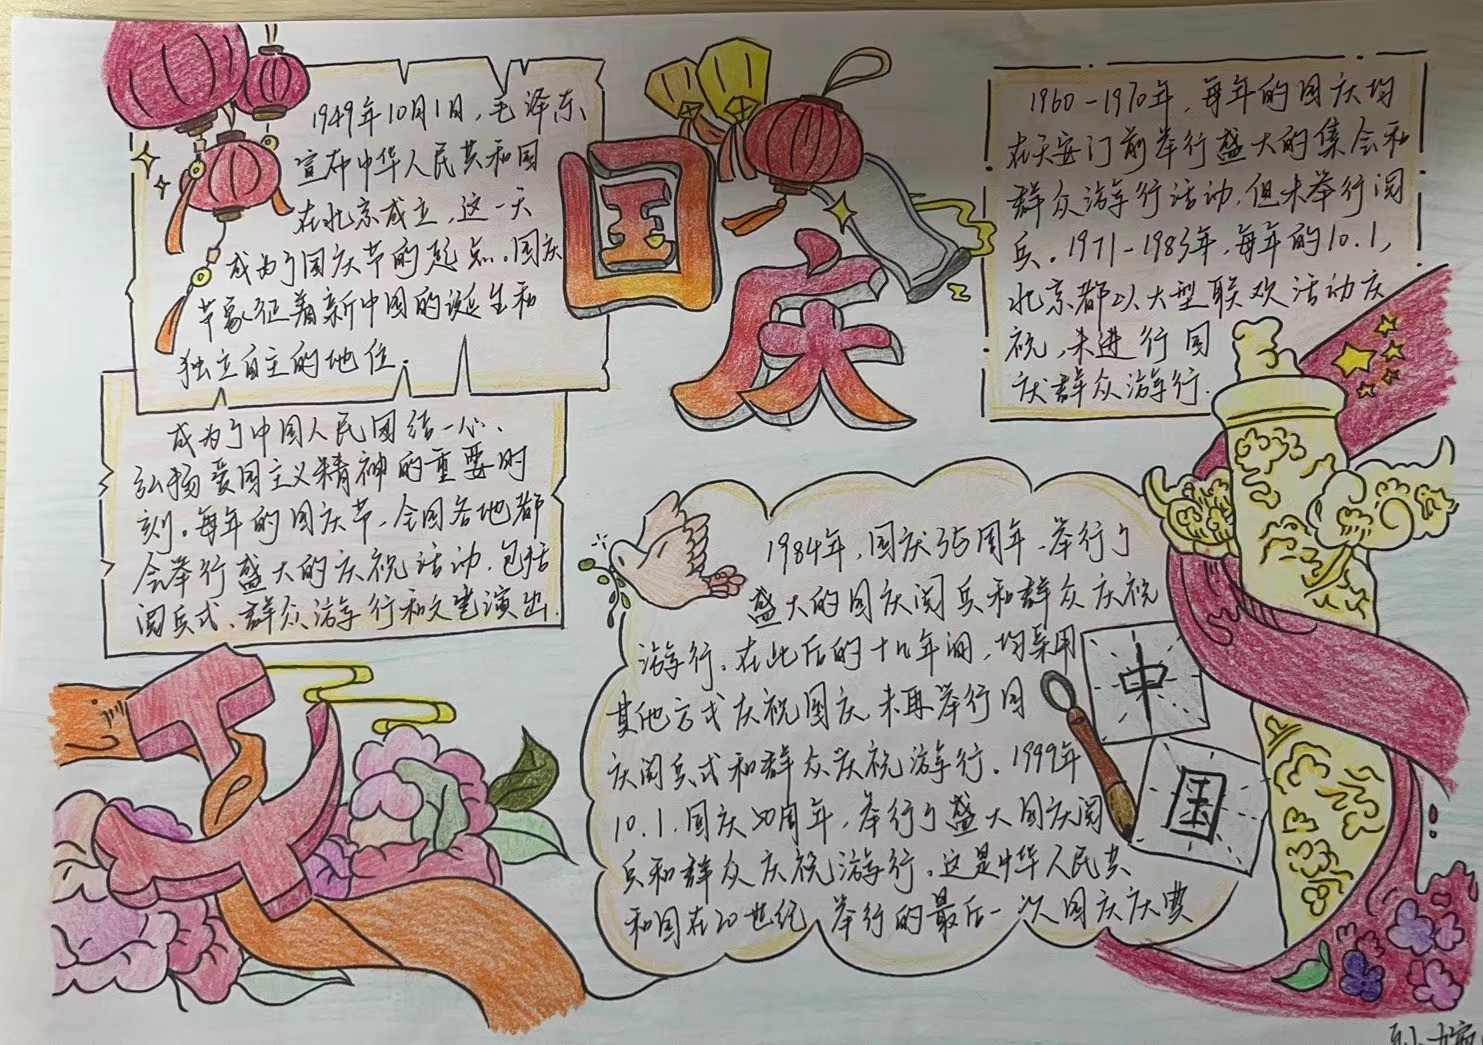 1949年10月1日，毛泽东
宣布中华人民共和国
在北京成立，这一天
成为了国庆节的起点。国庆
节象征着新中国的诞生和
独立自主的地位。
成为了中国人民团结一心、
弘扬爱国主义精神的重要时
刻。每年的国庆节，全国各地都
会举行盛大的庆祝活动，包括
阅兵式、群众游行和文艺演出.
国
庆
1960-1970年，每年的国庆均
在天安门前举行盛大的集会和
群众游行活动，但未举行阅
兵。1971-1983年，每年的10.1，
北京都以大型联欢活动庆
祝，未进行国
庆群众游行.
1984年，国庆35周年，举行了
盛大的国庆阅兵和群众庆祝
游行。在此后的十几年间，均采用
其他方式庆祝国庆，未再举行国
庆阅兵式和群众庆祝游行。1999年
10.1，国庆50周年，举行了盛大国庆阅
兵和群众庆祝游行。这是中华人民共
和国在20世纪举行的最后一次国庆庆典
中
国